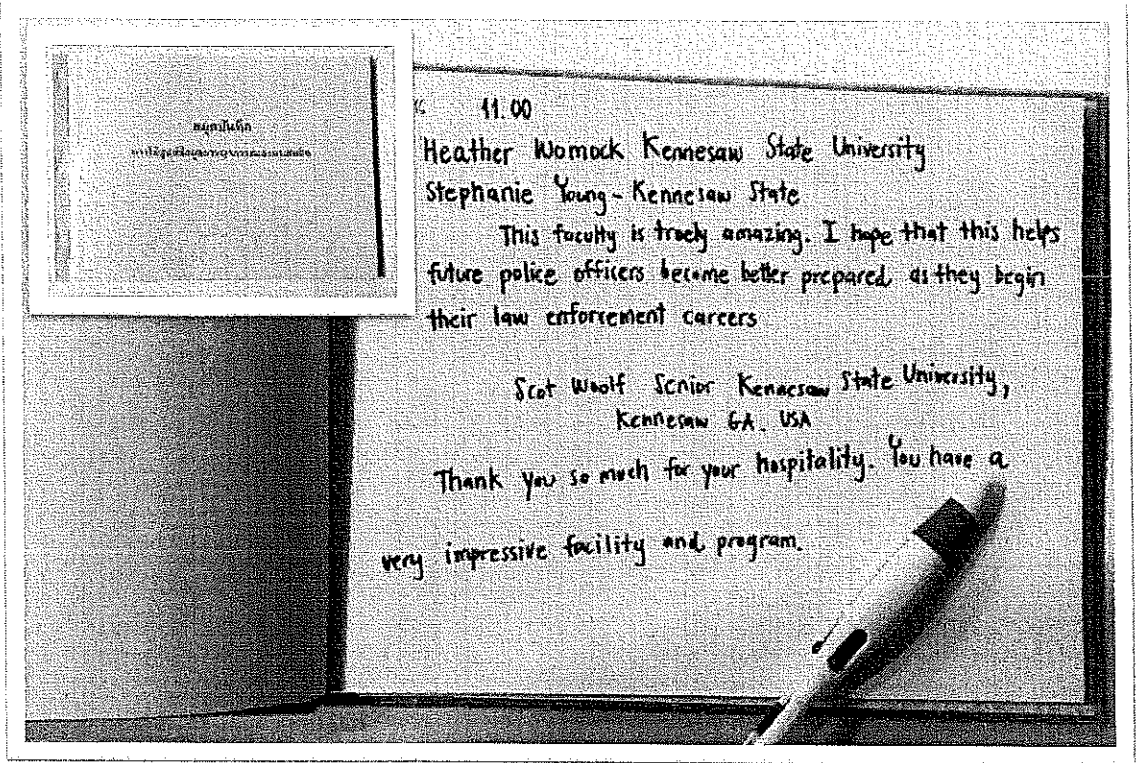 สมุดบันทึก
11.00
Heather Womack Kennesaw State University
Stephanie Young - Kennesaw State
This faculty is truely amazing. I hope that this helps
future police officers become better prepared as they begin
their law enforcement careers
Scot Woolf Senior Kennesaw State University,
Kennesaw GA. USA
Thank you so much for your hospitality. You have a
very impressive facility and program.